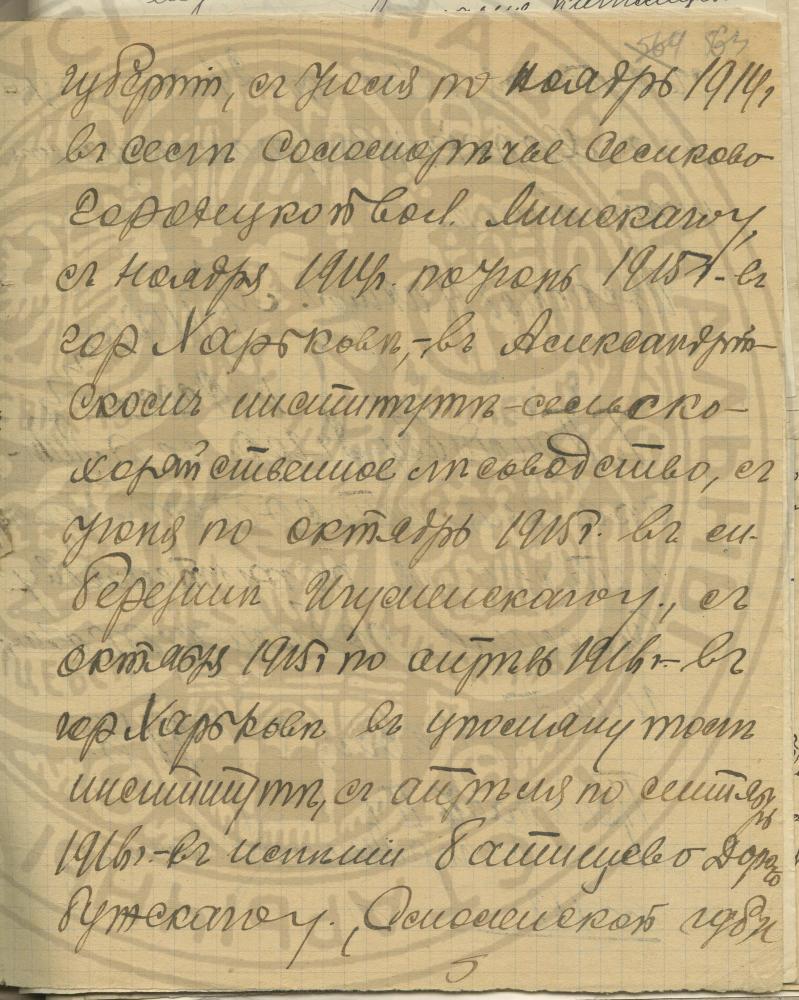 564 63
губерніи, съ Іюля по ноябрь 1914 г.
въ селѣ Соломорѣчье Семково
Городецкой вол. Минскаго у.,
съ ноября 1914 г. по Іюнь 1915 г. - въ
гор Харьковѣ, - въ Александрій-
скомъ институтѣ - сельско-
хозяйственное лѣсоводство, съ
Іюня по октябрь 1915 г. въ м.
Березинѣ Игуменскаго у., съ
октября 1915 г по апрѣль 1916 г. - въ
гор Харьковѣ въ упомянутомъ
институтѣ, съ апрѣля по сентябрь
1916 г. - въ имѣніи Батищево Доро-
бужскаго у., Смоленской губ. и